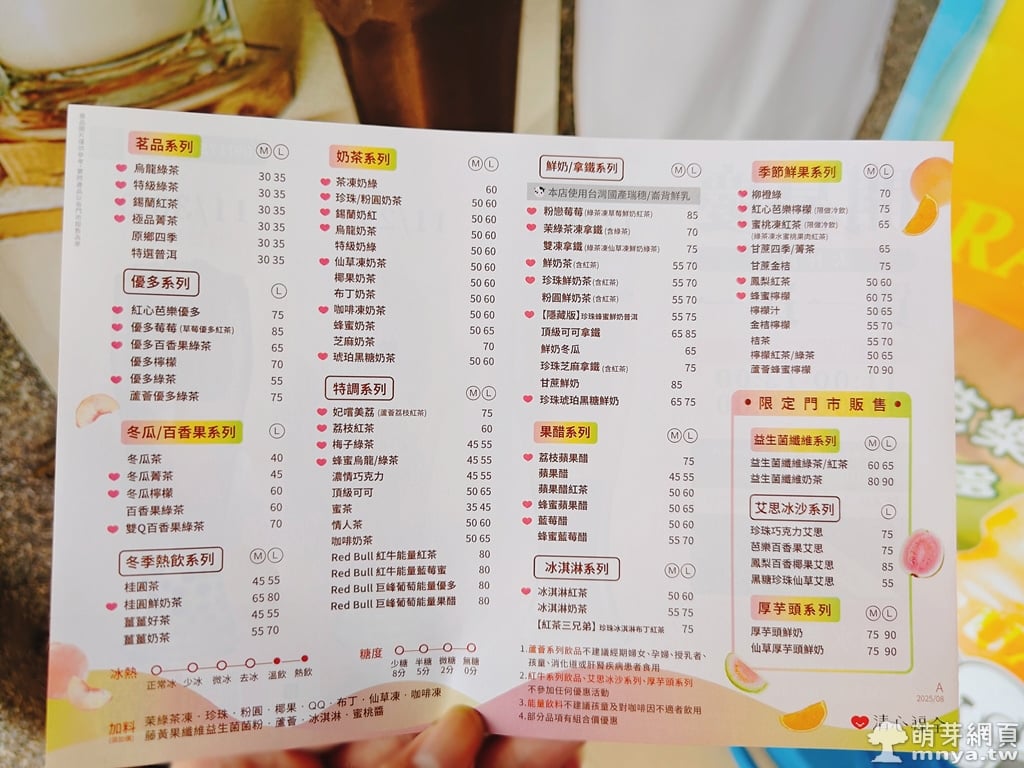 茗品系列 M L
烏龍綠茶 30 35
特級綠茶 30 35
錫蘭紅茶 30 35
極品菁茶 30 35
原鄉四季 30 35
特選普洱 30 35
優多系列 L
紅心芭樂優多 75
優多莓莓(草莓優多紅茶) 85
優多百香果綠茶 65
優多檸檬 70
優多綠茶 55
蘆薈優多綠茶 75
冬瓜/百香果系列 L
冬瓜茶 40
冬瓜菁茶 45
冬瓜檸檬 60
百香果綠茶 60
雙Q百香果綠茶 70
冬季熱飲系列 M L
桂圓茶 45 55
桂圓鮮奶茶 65 80
薑薑好茶 45 55
薑薑奶茶 55 70
奶茶系列 M L
茶凍奶綠 60
珍珠/粉圓奶茶 50 60
錫蘭奶紅 50 60
烏龍奶茶 50 60
特級奶綠 50 60
仙草凍奶茶 50 60
椰果奶茶 50 60
布丁奶茶 50 60
咖啡凍奶茶 50 60
蜂蜜奶茶 50 65
芝麻奶茶 70
琥珀黑糖奶茶 50 60
特調系列 M L
妃嚐美荔(蘆薈荔枝紅茶) 75
荔枝紅茶 60
梅子綠茶 45 55
蜂蜜烏龍/綠茶 45 55
濃情巧克力 45 55
頂級可可 50 65
蜜茶 35 45
情人茶 50 60
咖啡奶茶 50 65
Red Bull 紅牛能量紅茶 80
Red Bull 紅牛能量藍莓蜜 80
Red Bull 巨峰葡萄能量優多 80
Red Bull 巨峰葡萄能量果醋 80
鮮奶/拿鐵系列 M L
本店使用台灣國產瑞穗/崙背鮮乳
粉戀莓莓(綠茶凍草莓鮮奶紅茶) 85
茉綠茶凍拿鐵(含綠茶) 70
雙凍拿鐵(綠茶凍仙草凍鮮奶綠茶) 75
鮮奶茶(含紅茶) 55 70
珍珠鮮奶茶(含紅茶) 55 70
粉圓鮮奶茶(含紅茶) 55 70
【隱藏版】珍珠蜂蜜鮮奶普洱 55 75
頂級可可拿鐵 65 85
鮮奶冬瓜 65
珍珠芝麻拿鐵(含紅茶) 75
甘蔗鮮奶 85
珍珠琥珀黑糖鮮奶 65 75
果醋系列 M L
荔枝蘋果醋 75
蘋果醋 45 55
蘋果醋紅茶 50 60
蜂蜜蘋果醋 50 65
藍莓醋 50 60
蜂蜜藍莓醋 55 70
冰淇淋系列 M L
冰淇淋紅茶 50 60
冰淇淋奶茶 55 75
【紅茶三兄弟】珍珠冰淇淋布丁紅茶 75
季節鮮果系列 M L
柳橙綠 70
紅心芭樂檸檬(限做冷飲) 75
蜜桃凍紅茶(限做冷飲) 65
(綠茶凍水蜜桃果肉紅茶)
甘蔗四季/菁茶 65
甘蔗金桔 75
鳳梨紅茶 50 60
蜂蜜檸檬 60 75
檸檬汁 50 65
金桔檸檬 55 70
桔茶 55 70
檸檬紅茶/綠茶 50 65
蘆薈蜂蜜檸檬 70 90
限定門市販售
益生菌纖維系列 M L
益生菌纖維綠茶/紅茶 60 65
益生菌纖維奶茶 80 90
艾思冰沙系列 L
珍珠巧克力艾思 75
芭樂百香果艾思 75
鳳梨百香椰果艾思 85
黑糖珍珠仙草艾思 55
厚芋頭系列 M L
厚芋頭鮮奶 75 90
仙草厚芋頭鮮奶 75 90
冰熱 正常冰 少冰 微冰 去冰 溫飲 熱飲
糖度 少糖 半糖 微糖 無糖
8分 5分 2分 0分
加料 茉綠茶凍・珍珠・粉圓・椰果・QQ・布丁・仙草凍・咖啡凍
藤黃果纖維益生菌菌粉・蘆薈・冰淇淋・蜜桃醬
1.蘆薈系列飲品不建議經期婦女、孕婦、授乳者、
孩童、消化道或肝腎疾病患者食用
2.紅牛系列飲品、艾思冰沙系列、厚芋頭系列
不參加任何優惠活動
3.能量飲料不建議孩童及對咖啡因不適者飲用
4.部分品項有組合價優惠
A
2025/08
清心福全
萌芽網頁
mnya.tw